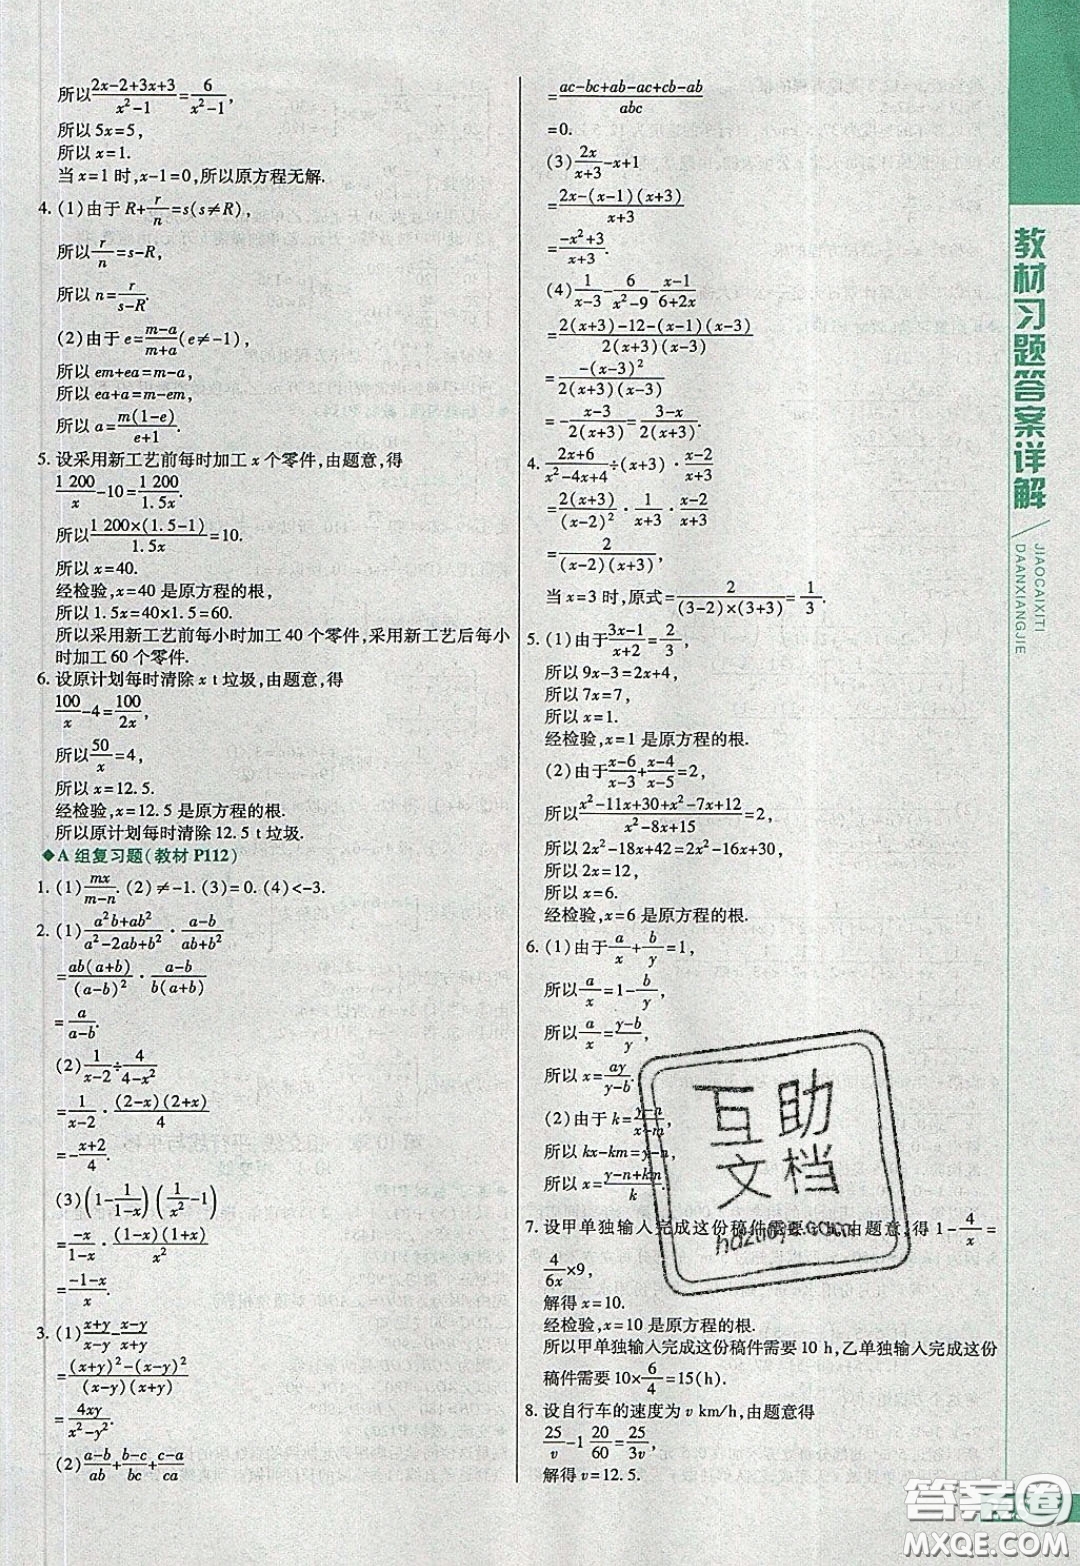 所以(2x-2+3x+3)/(x²-1)=6/(x²-1),
所以 5x=5,
所以 x=1.
当 x=1 时,x-1=0,所以原方程无解.
4. (1)由于 R+r/n=s(s≠R),
所以 r/n=s-R,
所以 n=r/(s-R).
(2)由于 e=(m-a)/(m+a)(e≠-1),
所以 em+ea=m-a,
所以 ea+a=m-em,
所以 a=m(1-e)/(e+1).
5. 设采用新工艺前每时加工 x 个零件,由题意,得
1 200/x-10=1 200/1.5x.
所以 1 200×(1.5-1)/1.5x=10.
所以 x=40.
经检验,x=40 是原方程的根.
所以 1.5x=40×1.5=60.
所以采用新工艺前每小时加工 40 个零件,采用新工艺后每小
时加工 60 个零件.
6. 设原计划每时清除 x t 垃圾,由题意,得
100/x-4=100/2x,
所以 50/x=4,
所以 x=12.5.
经检验,x=12.5 是原方程的根.
所以原计划每时清除 12.5 t 垃圾.
◆A 组复习题(教材 P112)
1. (1)mx/(m-n). (2)≠-1. (3)=0. (4)<-3.
2. (1)(a²b+ab²)/(a²-2ab+b²)·(a-b)/(ab+b²)
=ab(a+b)/(a-b)²·(a-b)/b(a+b)
=a/(a-b).
(2)1/(x-2)÷4/(4-x²)
=1/(x-2)·(2-x)(2+x)/4
=-(x+2)/4.
(3)(1-1/(1-x))(1/x²-1)
=-x/(1-x)·(1-x)(1+x)/x²
=(-1-x)/x.
3. (1)(x+y)/(x-y)-(x-y)/(x+y)
=((x+y)²-(x-y)²)/((x-y)(x+y))
=4xy/(x²-y²).
(2)(a-b)/ab+(b-c)/bc+(c-a)/ca
=(ac-bc+ab-ac+cb-ab)/abc
=0.
(3)2x/(x+3)-x+1
=(2x-(x-1)(x+3))/(x+3)
=(-x²+3)/(x+3).
(4)1/(x-3)-6/(x²-9)-(x-1)/(6+2x)
=(2(x+3)-12-(x-1)(x-3))/(2(x+3)(x-3))
=-(x-3)²/(2(x+3)(x-3))
=-(x-3)/(2(x+3))=(3-x)/(2(x+3)).
4. (2x+6)/(x²-4x+4)÷(x+3)·(x-2)/(x+3)
=2(x+3)/(x-2)²·1/(x+3)·(x-2)/(x+3)
=2/((x-2)(x+3)).
当 x=3 时,原式=2/((3-2)×(3+3))=1/3.
5. (1)由于(3x-1)/(x+2)=2/3,
所以 9x-3=2x+4,
所以 7x=7,
所以 x=1.
经检验,x=1 是原方程的根.
(2)由于(x-6)/(x-3)+(x-4)/(x-5)=2,
所以(x²-11x+30+x²-7x+12)/(x²-8x+15)=2,
所以 2x²-18x+42=2x²-16x+30,
所以 2x=12,
所以 x=6.
经检验,x=6 是原方程的根.
6. (1)由于 a/x+b/y=1,
所以 a/x=1-b/y,
所以 a/x=(y-b)/y,
所以 x=ay/(y-b).
(2)由于 k=(y-n)/(x-m),
所以 kx-km=y-n,
所以 x=(y-n+km)/k.
7. 设甲单独输入完成这份稿件需要 x h,由题意,得 1-4/x=
4/6x×9,
解得 x=10.
经检验,x=10 是原方程的根.
所以甲单独输入完成这份稿件需要 10 h,乙单独输入完成这份
稿件需要 10×6/4=15(h).
8. 设自行车的速度为 v km/h,由题意得
25/v-1 20/60=25/3v,
解得 v=12.5.
教材习题答案详解
JIAOCAIXITI
DAANXIANGJIE
互助
文档
hdzuoye.com
答案圈
MXQE.COM